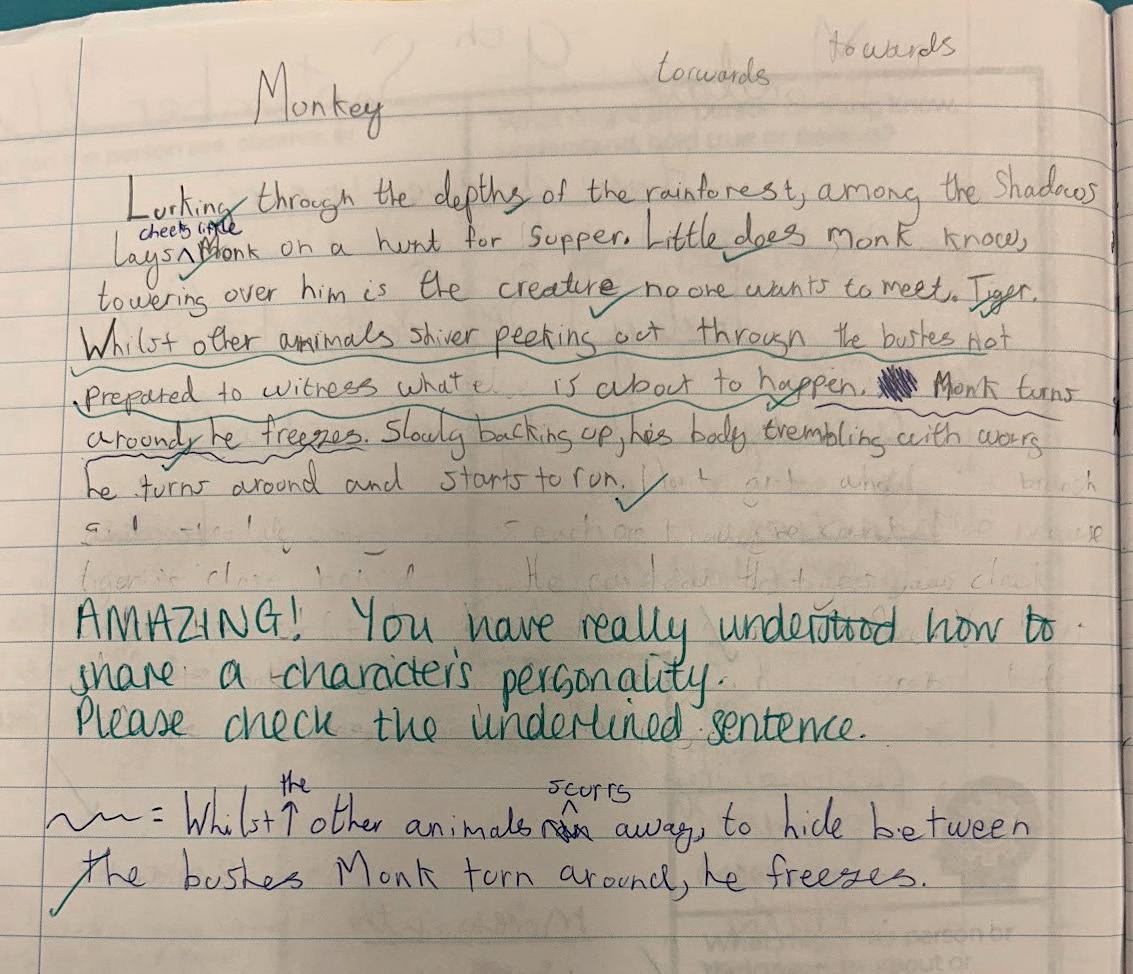 towards
torwards
Monkey
Lurking through the depths of the rainforest, among the Shadows
cheeky little
lays ^ Monk on a hunt for Supper. Little does monk know,
towering over him is the creature no one wants to meet. Tiger.
Whilst other animals shiver peeking out through the bushes not
prepared to witness what is about to happen. Monk turns
around, he freezes. Slowly backing up, his body trembling with worry
he turns around and starts to run.
AMAZING! You have really understood how to
share a character's personality.
Please check the underlined sentence.
the scurry
= Whilst ↑ other animals away, to hide between
the bushes Monk turn around, he freezes.